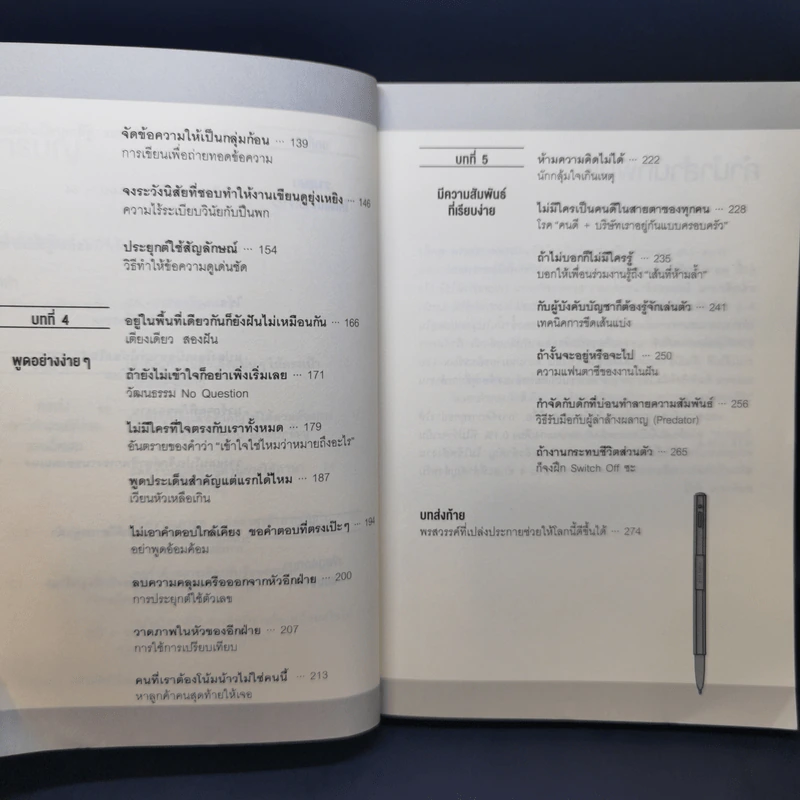 จัดข้อความให้เป็นกลุ่มก้อน ... 139
การเขียนเพื่อถ่ายทอดข้อความ
จงระวังนิสัยที่ชอบทำให้งานเขียนดูยุ่งเหยิง ... 146
ความไร้ระเบียบวินัยกับปีนพก
ประยุกต์ใช้สัญลักษณ์ ... 154
วิธีทำให้ข้อความดูเด่นชัด
บทที่ 4
พูดอย่างง่าย ๆ
อยู่ในพื้นที่เดียวกันก็ยังฝันไม่เหมือนกัน ... 166
เตียงเดียว สองฝัน
ถ้ายังไม่เข้าใจก็อย่าเพิ่งเริ่มเลย ... 171
วัฒนธรรม No Question
ไม่มีใครที่ใจตรงกับเราทั้งหมด ... 179
อันตรายของคำว่า "เข้าใจใช่ไหมว่าหมายถึงอะไร"
พูดประเด็นสำคัญแต่แรกได้ไหม ... 187
เวียนหัวเหลือเกิน
ไม่เอาคำตอบใกล้เคียง ขอคำตอบที่ตรงเป๊ะ ๆ ... 194
อย่าพูดอ้อมค้อม
ลบความคลุมเครือออกจากหัวอีกฝ่าย ... 200
การประยุกต์ใช้ตัวเลข
วาดภาพในหัวของอีกฝ่าย ... 207
การใช้การเปรียบเทียบ
คนที่เราต้องโน้มน้าวไม่ใช่คนนี้ ... 213
หาลูกค้าคนสุดท้ายให้เจอ
บทที่ 5
มีความสัมพันธ์
ที่เรียบง่าย
ห้ามความคิดไม่ได้ ... 222
นักกลุ้มใจเกินเหตุ
ไม่มีใครเป็นคนดีในสายตาของทุกคน ... 228
โรค "คนดี + บริษัทเราอยู่กันแบบครอบครัว"
ถ้าไม่บอกก็ไม่มีใครรู้ ... 235
บอกให้เพื่อนร่วมงานรู้ถึง "เส้นที่ห้ามล้ำ"
กับผู้บังคับบัญชาก็ต้องรู้จักเล่นตัว ... 241
เทคนิคการขีดเส้นแบ่ง
ถ้างั้นจะอยู่หรือจะไป ... 250
ความแฟนตาซีของงานในฝัน
กำจัดกับดักที่บ่อนทำลายความสัมพันธ์ ... 256
วิธีรับมือกับผู้ล่าล้างผลาญ (Predator)
ถ้างานกระทบชีวิตส่วนตัว ... 265
ก็จงฝึก Switch Off ซะ
บทส่งท้าย
พรสวรรค์ที่เปล่งประกายช่วยให้โลกนี้ดีขึ้นได้ ... 274